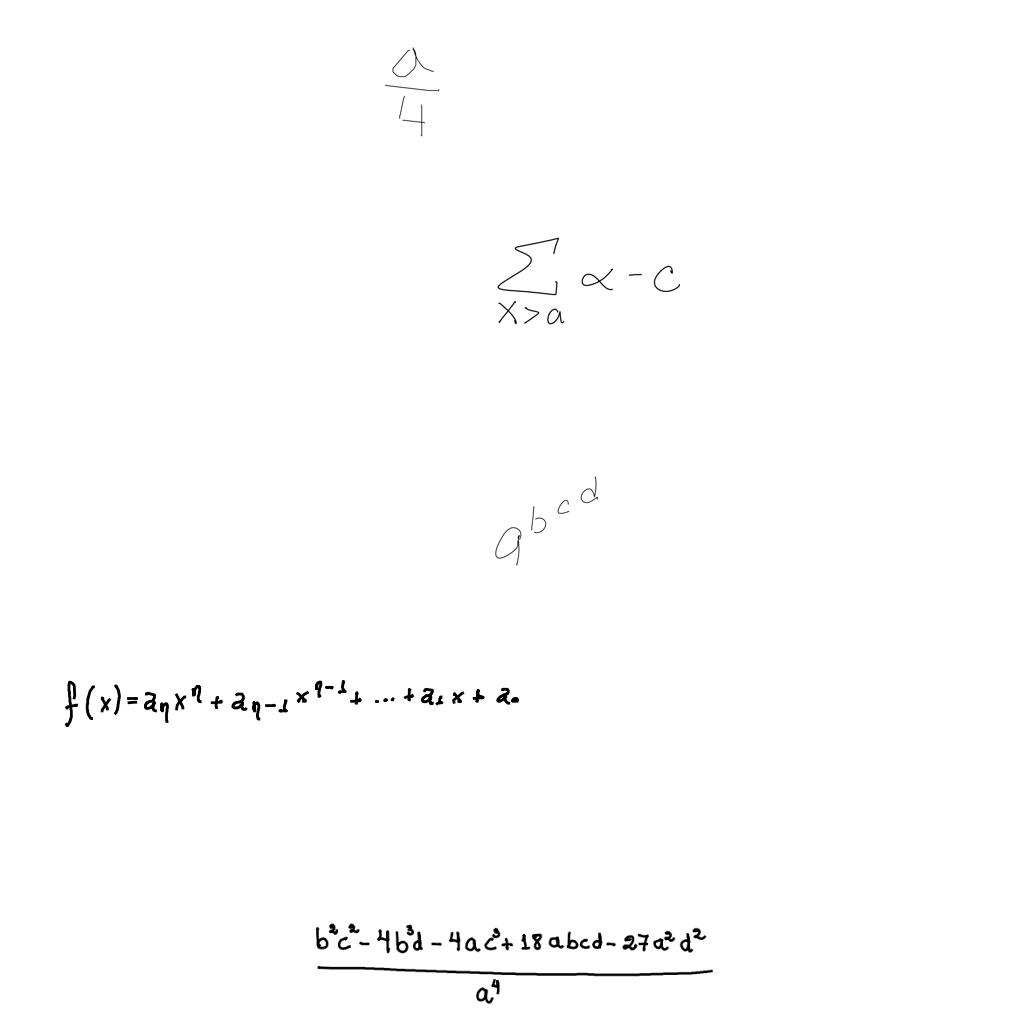 \frac{a}{4}
\sum_{x>a} \alpha - c
a^{b^{c^{d}}}
f(x) = a_{n}x^{n} + a_{n-1}x^{n-1} + ... + a_{1}x + a_{0}
\frac{b^{2}c^{2} - 4b^{3}d - 4ac^{3} + 18abcd - 27a^{2}d^{2}}{a^{4}}